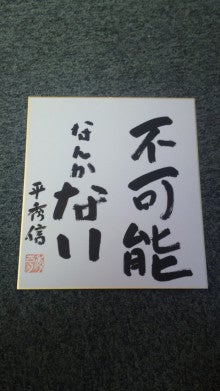 不可能
なんかない
平秀信